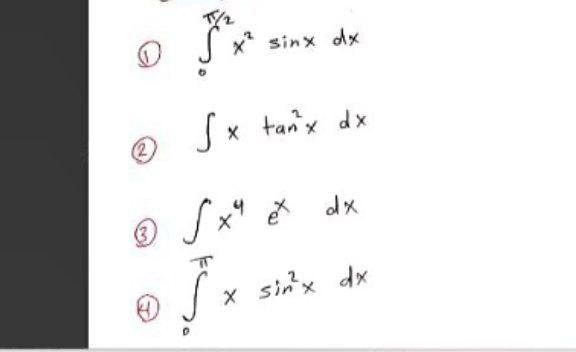 ① ∫₀^{π/2} x² sinx dx
② ∫ x tan²x dx
③ ∫ x⁴ eˣ dx
④ ∫₀^π x sin²x dx